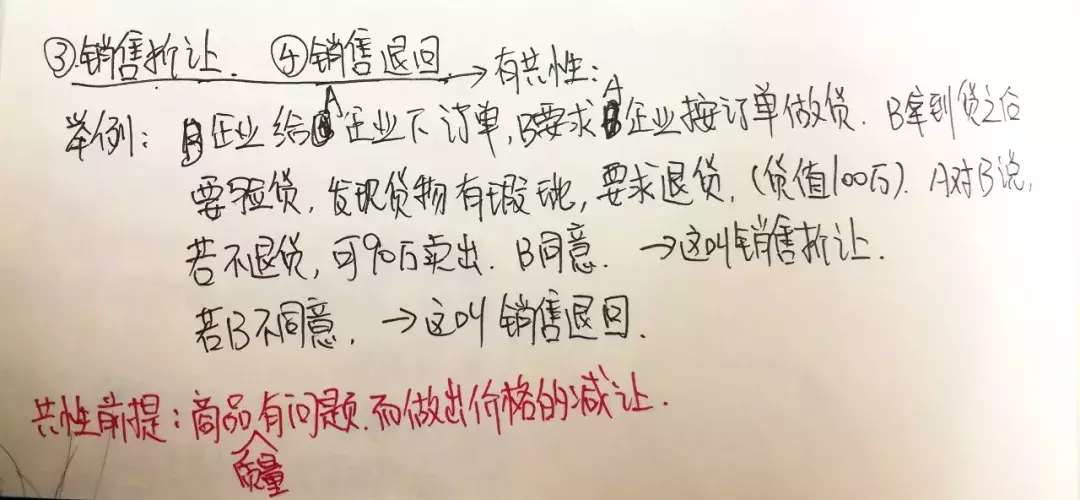 ③销售折让. ④销售退回. →有共性:
举例: B企业给A企业下订单,B要求A企业按订单做货. B拿到货之后
要验货,发现货物有瑕疵,要求退货,(货值100万). A对B说,
若不退货,可90万卖出. B同意. →这叫销售折让.
若B不同意. →这叫销售退回.
共性前提:商品质量有问题.而做出价格的减让.